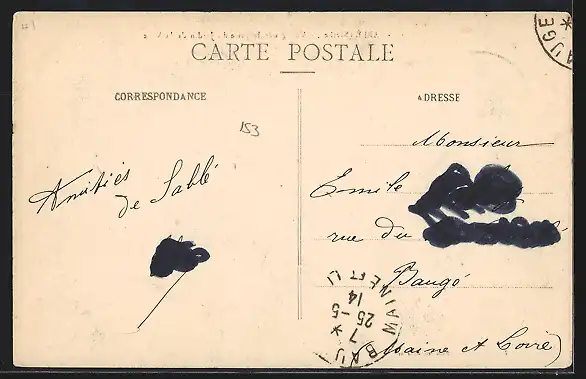 CARTE POSTALE
CORRESPONDANCE
ADRESSE
153
Amitiés
de Sablé
Monsieur
Emile
rue du
Baugé
(Maine et Loire)
BAUGE *
BAU * MAINE ET L
7 *
25 -5
14